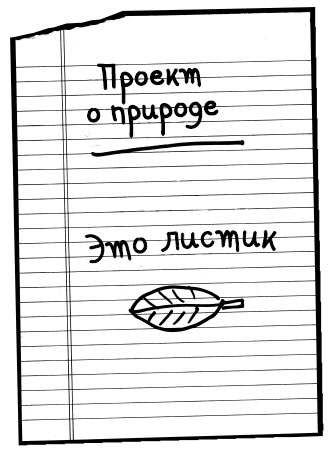 Проект
о природе
Это листик